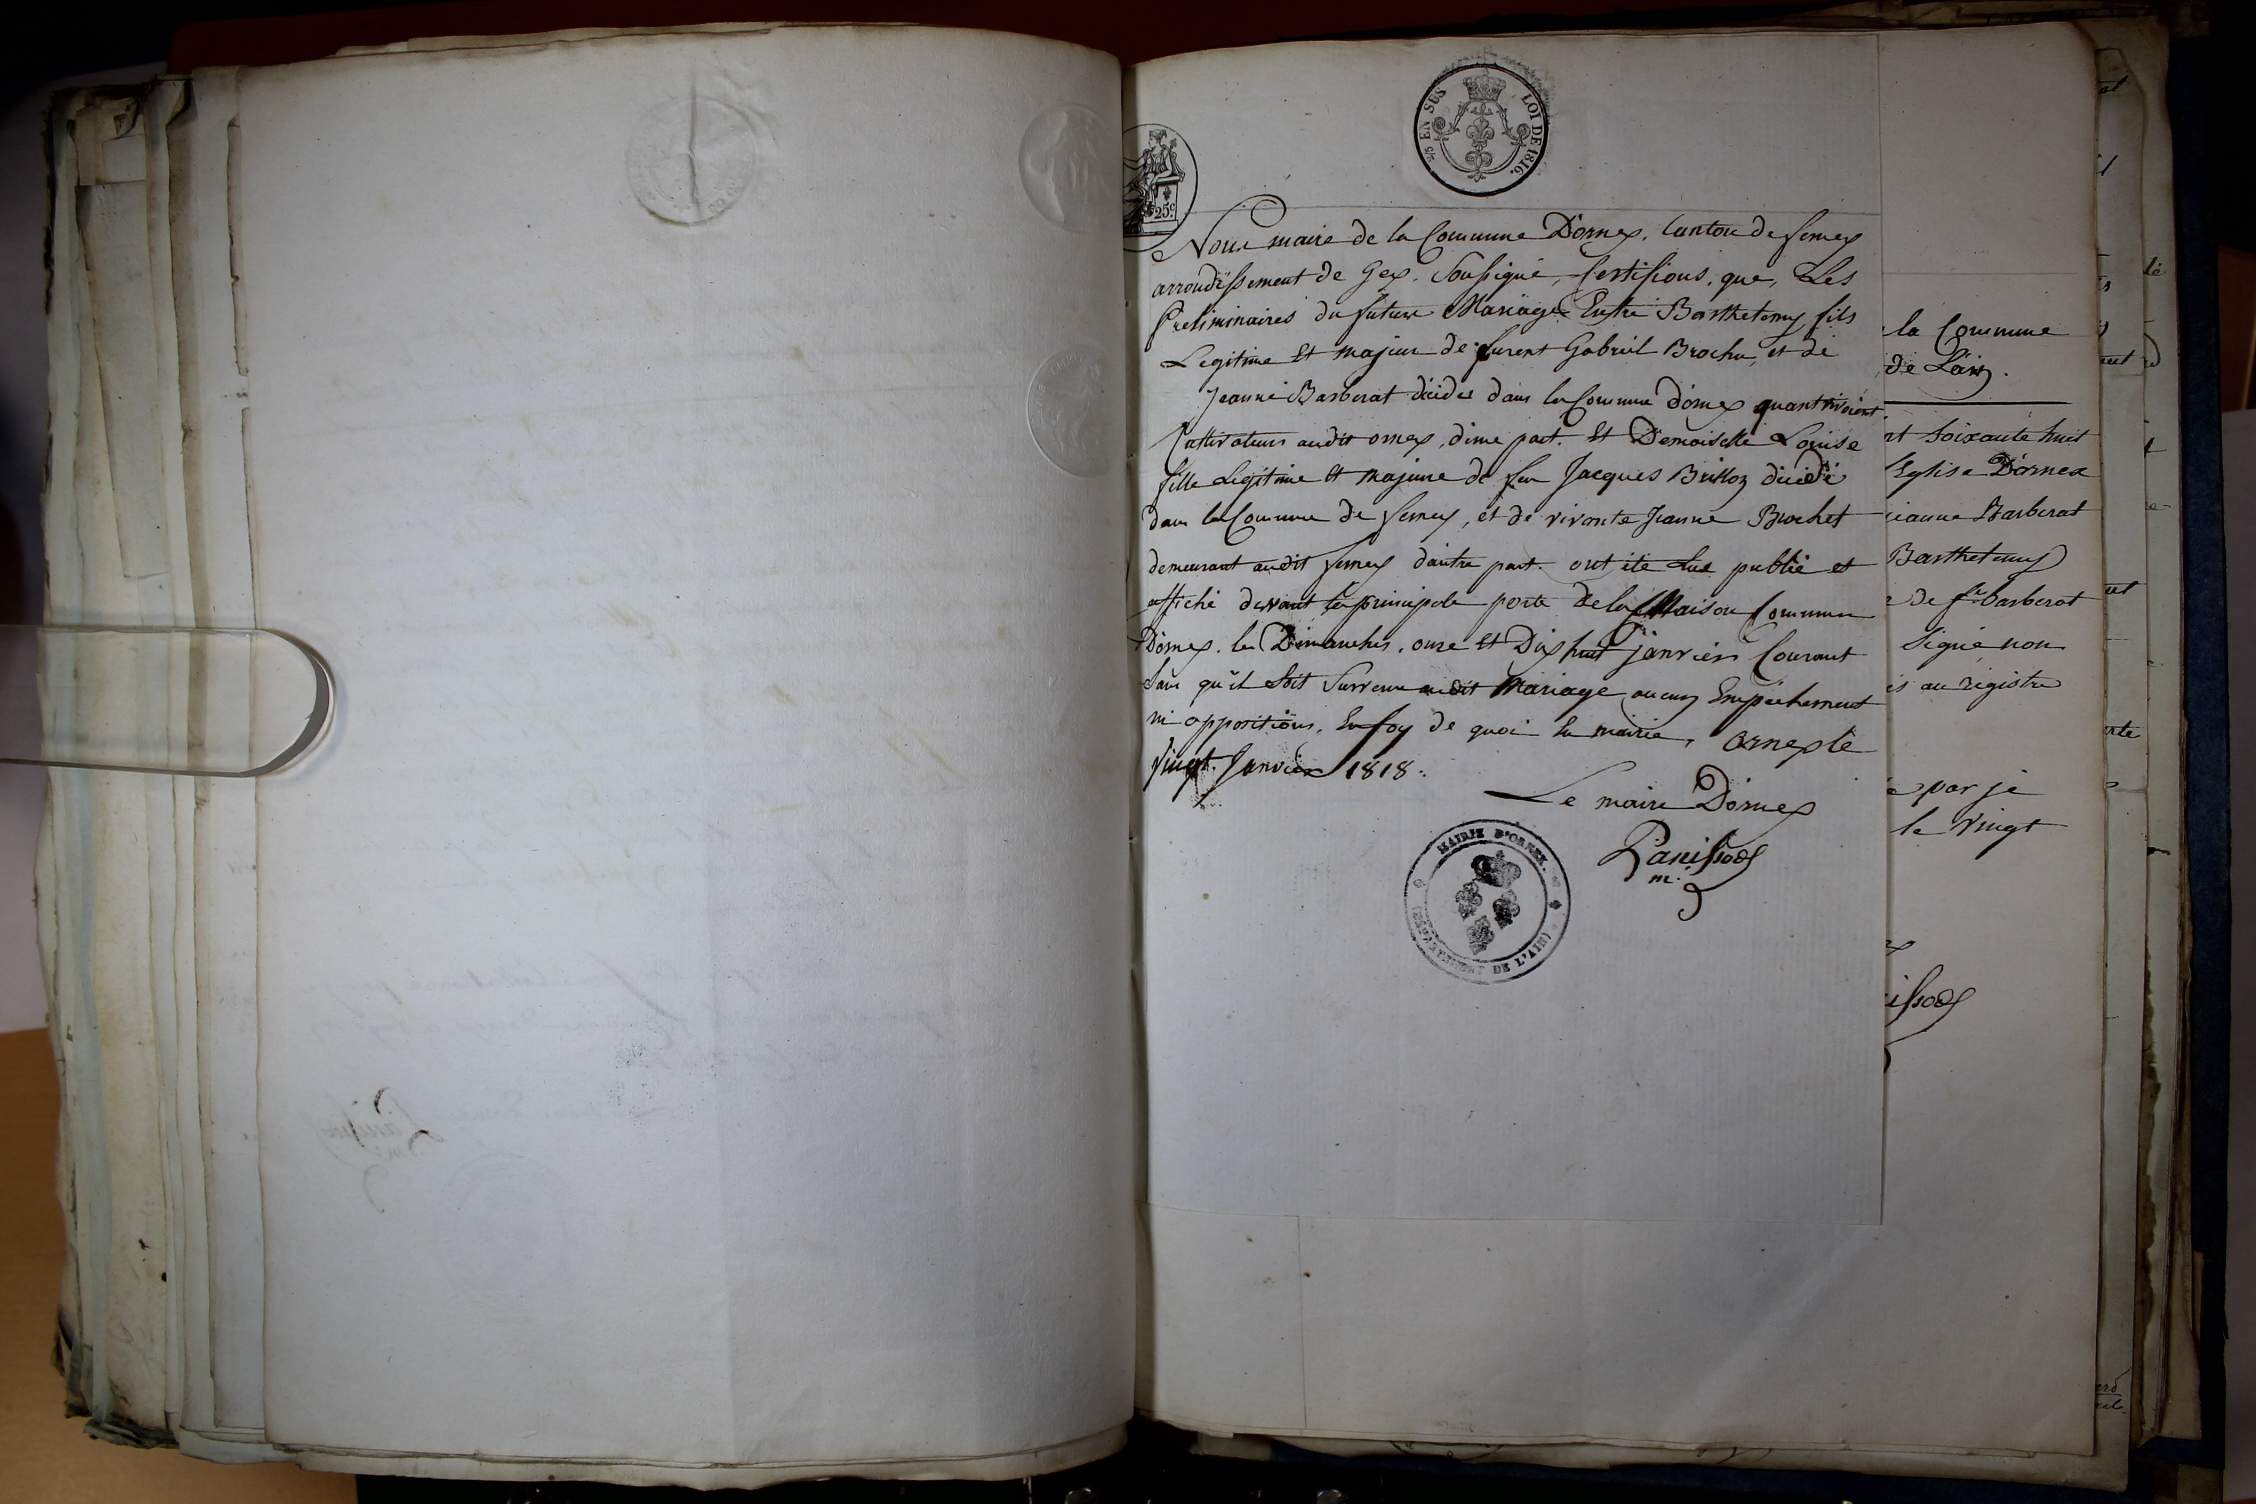 5/ EN SUS LOI DE 1816.
25c
Nous maire de la Commune D'ornex, Canton de ferney
arrondissement de Gex, Soussigné, Certifions, que, Les
Preliminaires du futur Mariage Entre Barthelemy fils
Legitime Et majeur de furent Gabriel Brochu, et de
Jeanne Barberat décédés dans la Commune D'ornex quant vivoient
Cultivateurs audit ornex, d'une part. Et Demoiselle Louise
fille Legitime Et majeure de feu Jacques Brilloz décédé
dans la Commune de ferney, et de vivante Jeanne Brochet
demeurant audit ferney d'autre part. ont été Lue publié et
affiché devant la principale porte de la Maison Commune
D'ornex. les Dimanches, onze Et Dix huit janvier Courant
Sans qu'il Soit Survenu audit Mariage aucun Empêchement
ni oppositions, En foy de quoi En mairie, ornex le
Vingt Janvier 1818.
Le maire D'ornex
Panissod
m.
MAIRIE D'ORNEX.
(DEPARTEMENT DE L'AIN)
la Commune
de L'ain.
nt Soixante huit
l'Eglise D'ornex
jeanne Barberat
Barthelemy
de fs. barberat
Signé non
au régistre
par je
le vingt
issod